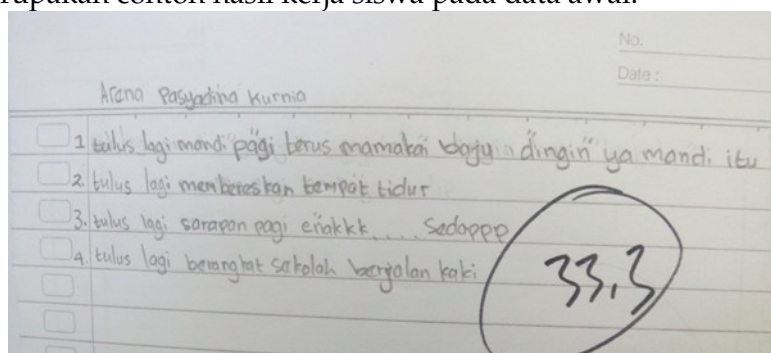 rupakan contoh hasil kerja siswa pada data awal.
No.
Date :
Arana Pasyadina Kurnia
1 tulus lagi mandi pagi terus mamakai baju dingin" ya mandi itu
2. tulus lagi membereskan tempat tidur
3. tulus lagi sarapan pagi enakkk.... Sedappp
4. tulus lagi berangkat sekolah berjalan kaki
33,3